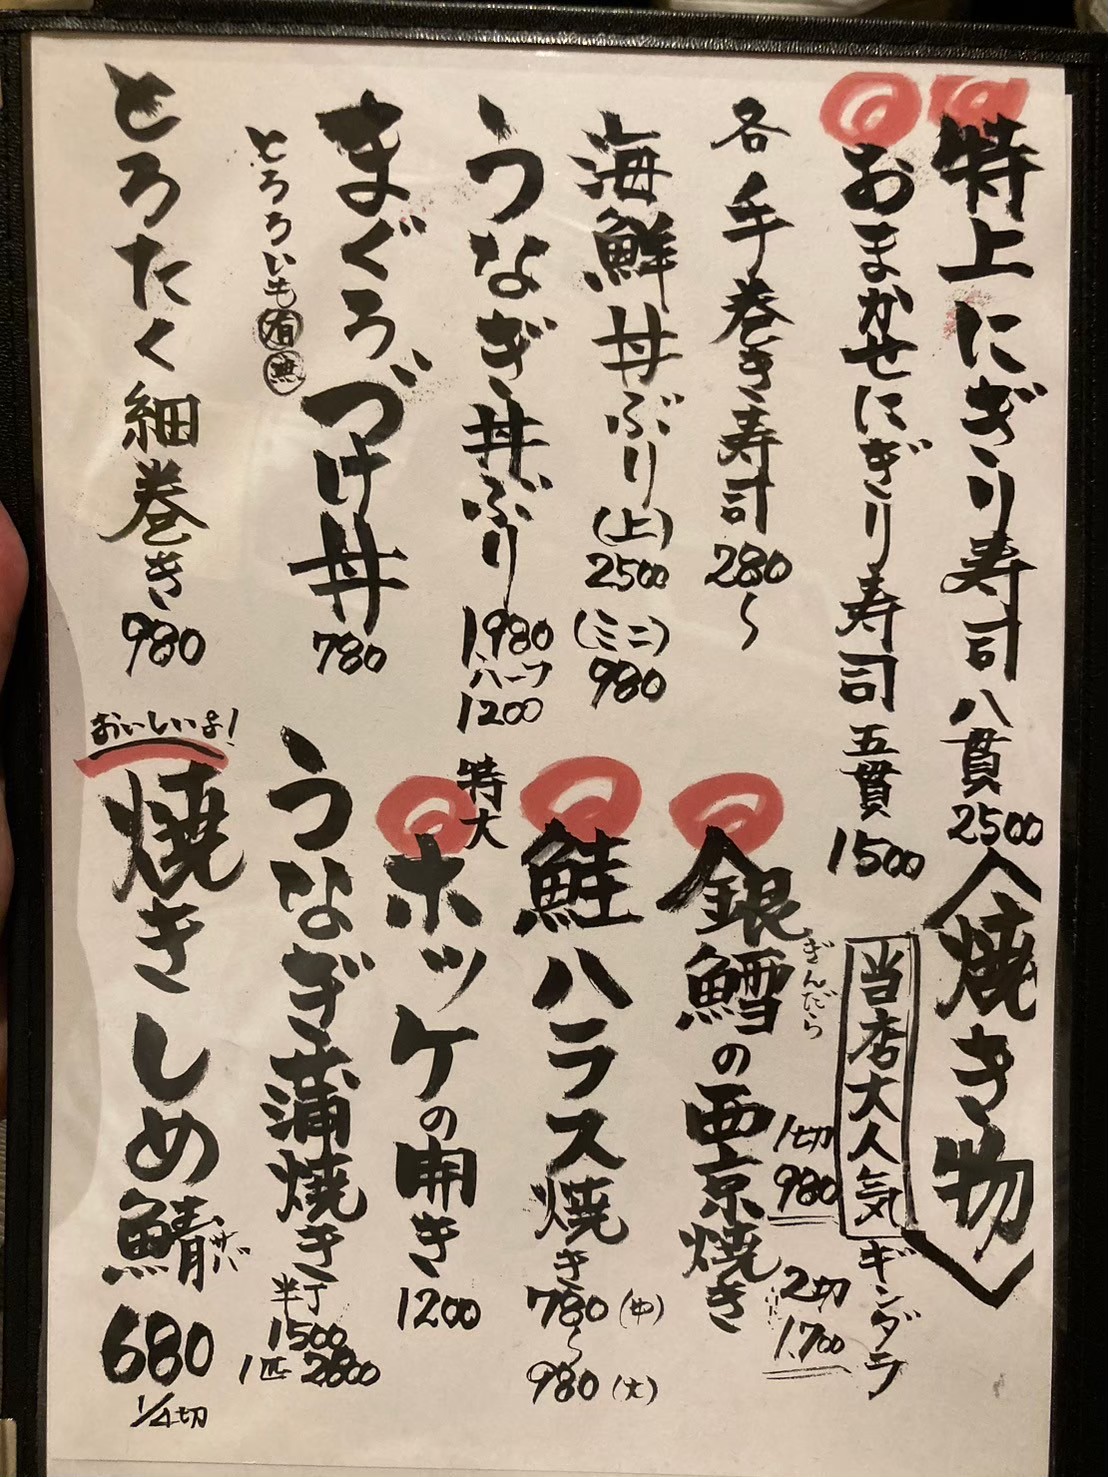 特上にぎり寿司 八貫 2500
おまかせにぎり寿司 五貫 1500
各手巻き寿司 280〜
海鮮丼ぶり (上) 2500 (ミニ) 980
うなぎ丼ぶり 1,980
ハーフ 1200
まぐろづけ丼 780
とろろいも 有 無
とろたく細巻き 980
焼き物
当店大人気 ギンダラ
銀鱈の西京焼き
ぎんだら
1切 980
2切 1,700
鮭ハラス焼き
780 (中)
〜
980 (大)
特大
ホッケの開き 1200
うなぎ蒲焼き
半丁 1500
1匹 2800
おいしいよ!
焼きしめ鯖
サバ
680
1/4切